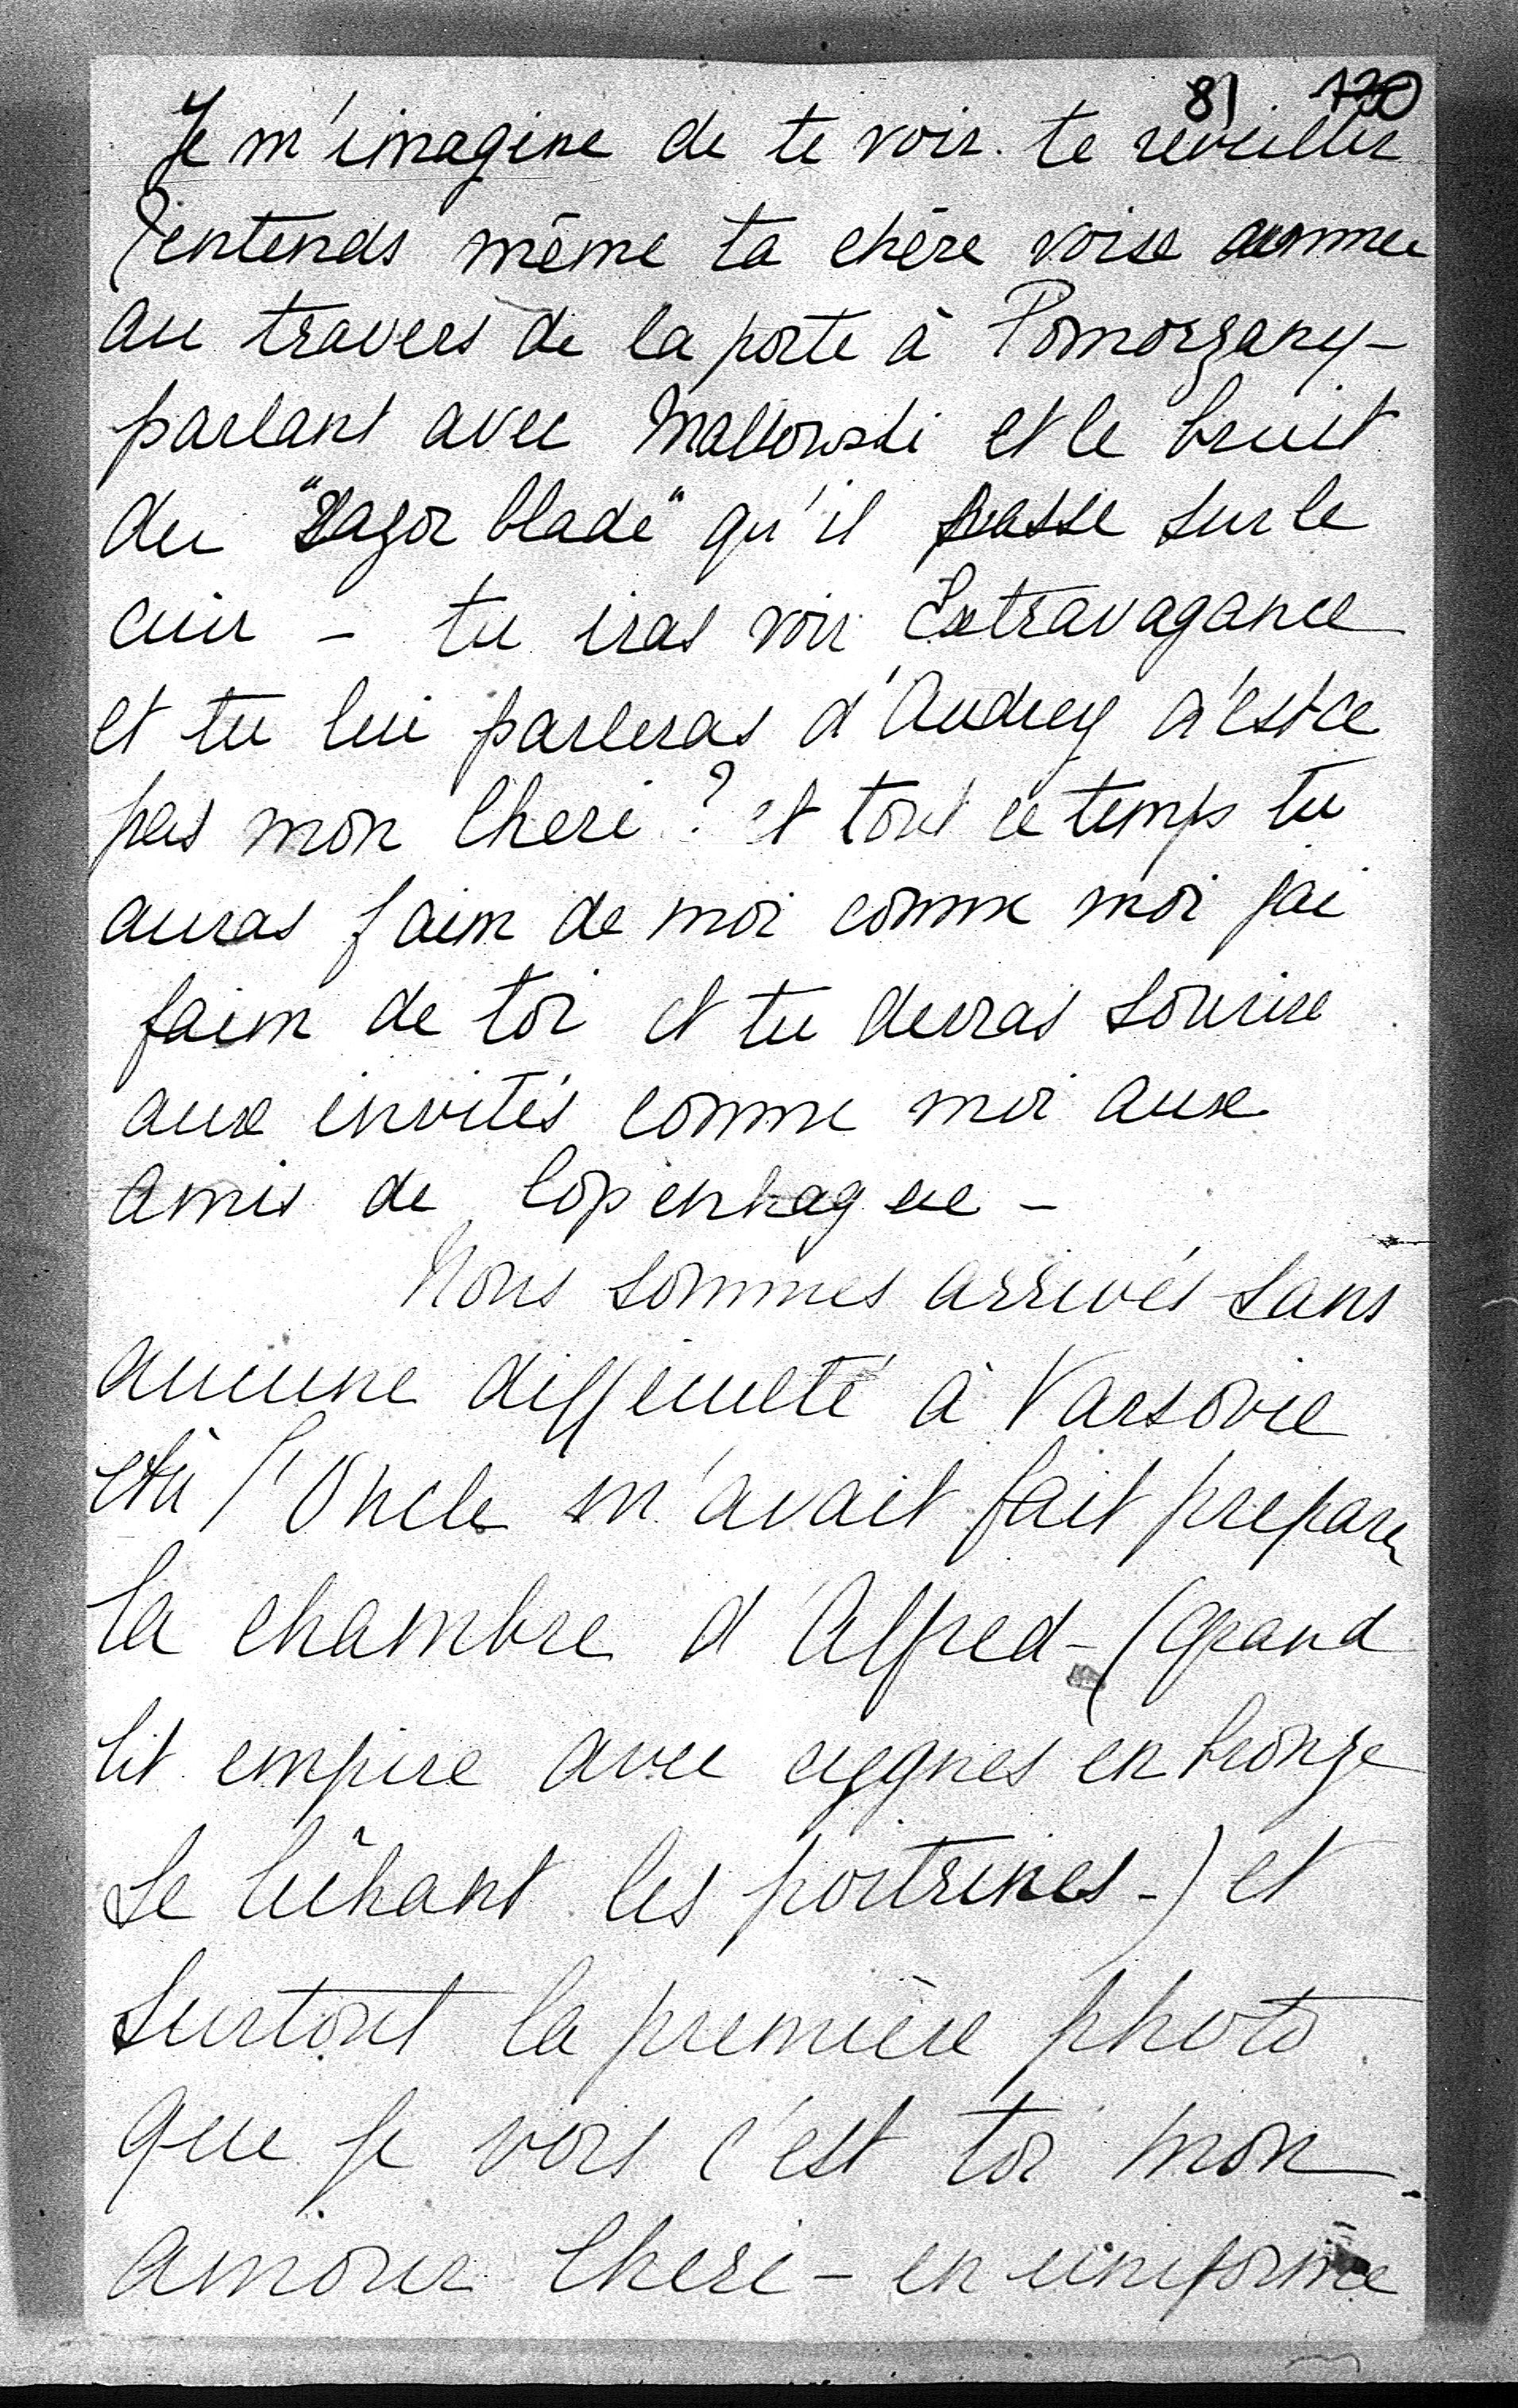 81 120
Je m'imagine de te voir te reveiller
j'entends même ta chère voix
au travers de la porte à Pomorzany -
parlant avec Malkowski et le bruit
du "razor blade" qu'il passe sur le
cuir - tu iras voir Extravagance
et tu lui parleras d'Audrey n'est'ce
pas mon Cheri ? et tout ce temps tu
auras faim de moi comme moi j'ai
faim de toi et tu devras sourire
aux invités comme moi aux
amis de Copenhague -
Nous sommes arrivés sans
aucune difficulté à Varsovie
l'Oncle m'avait fait preparer
la chambre d'Alfred - (grand
lit empire avec cygnes en bronze
se lêchant les poitrines -) et
surtout la première photo
que je vois c'est toi mon
amour Cheri - en uniforme